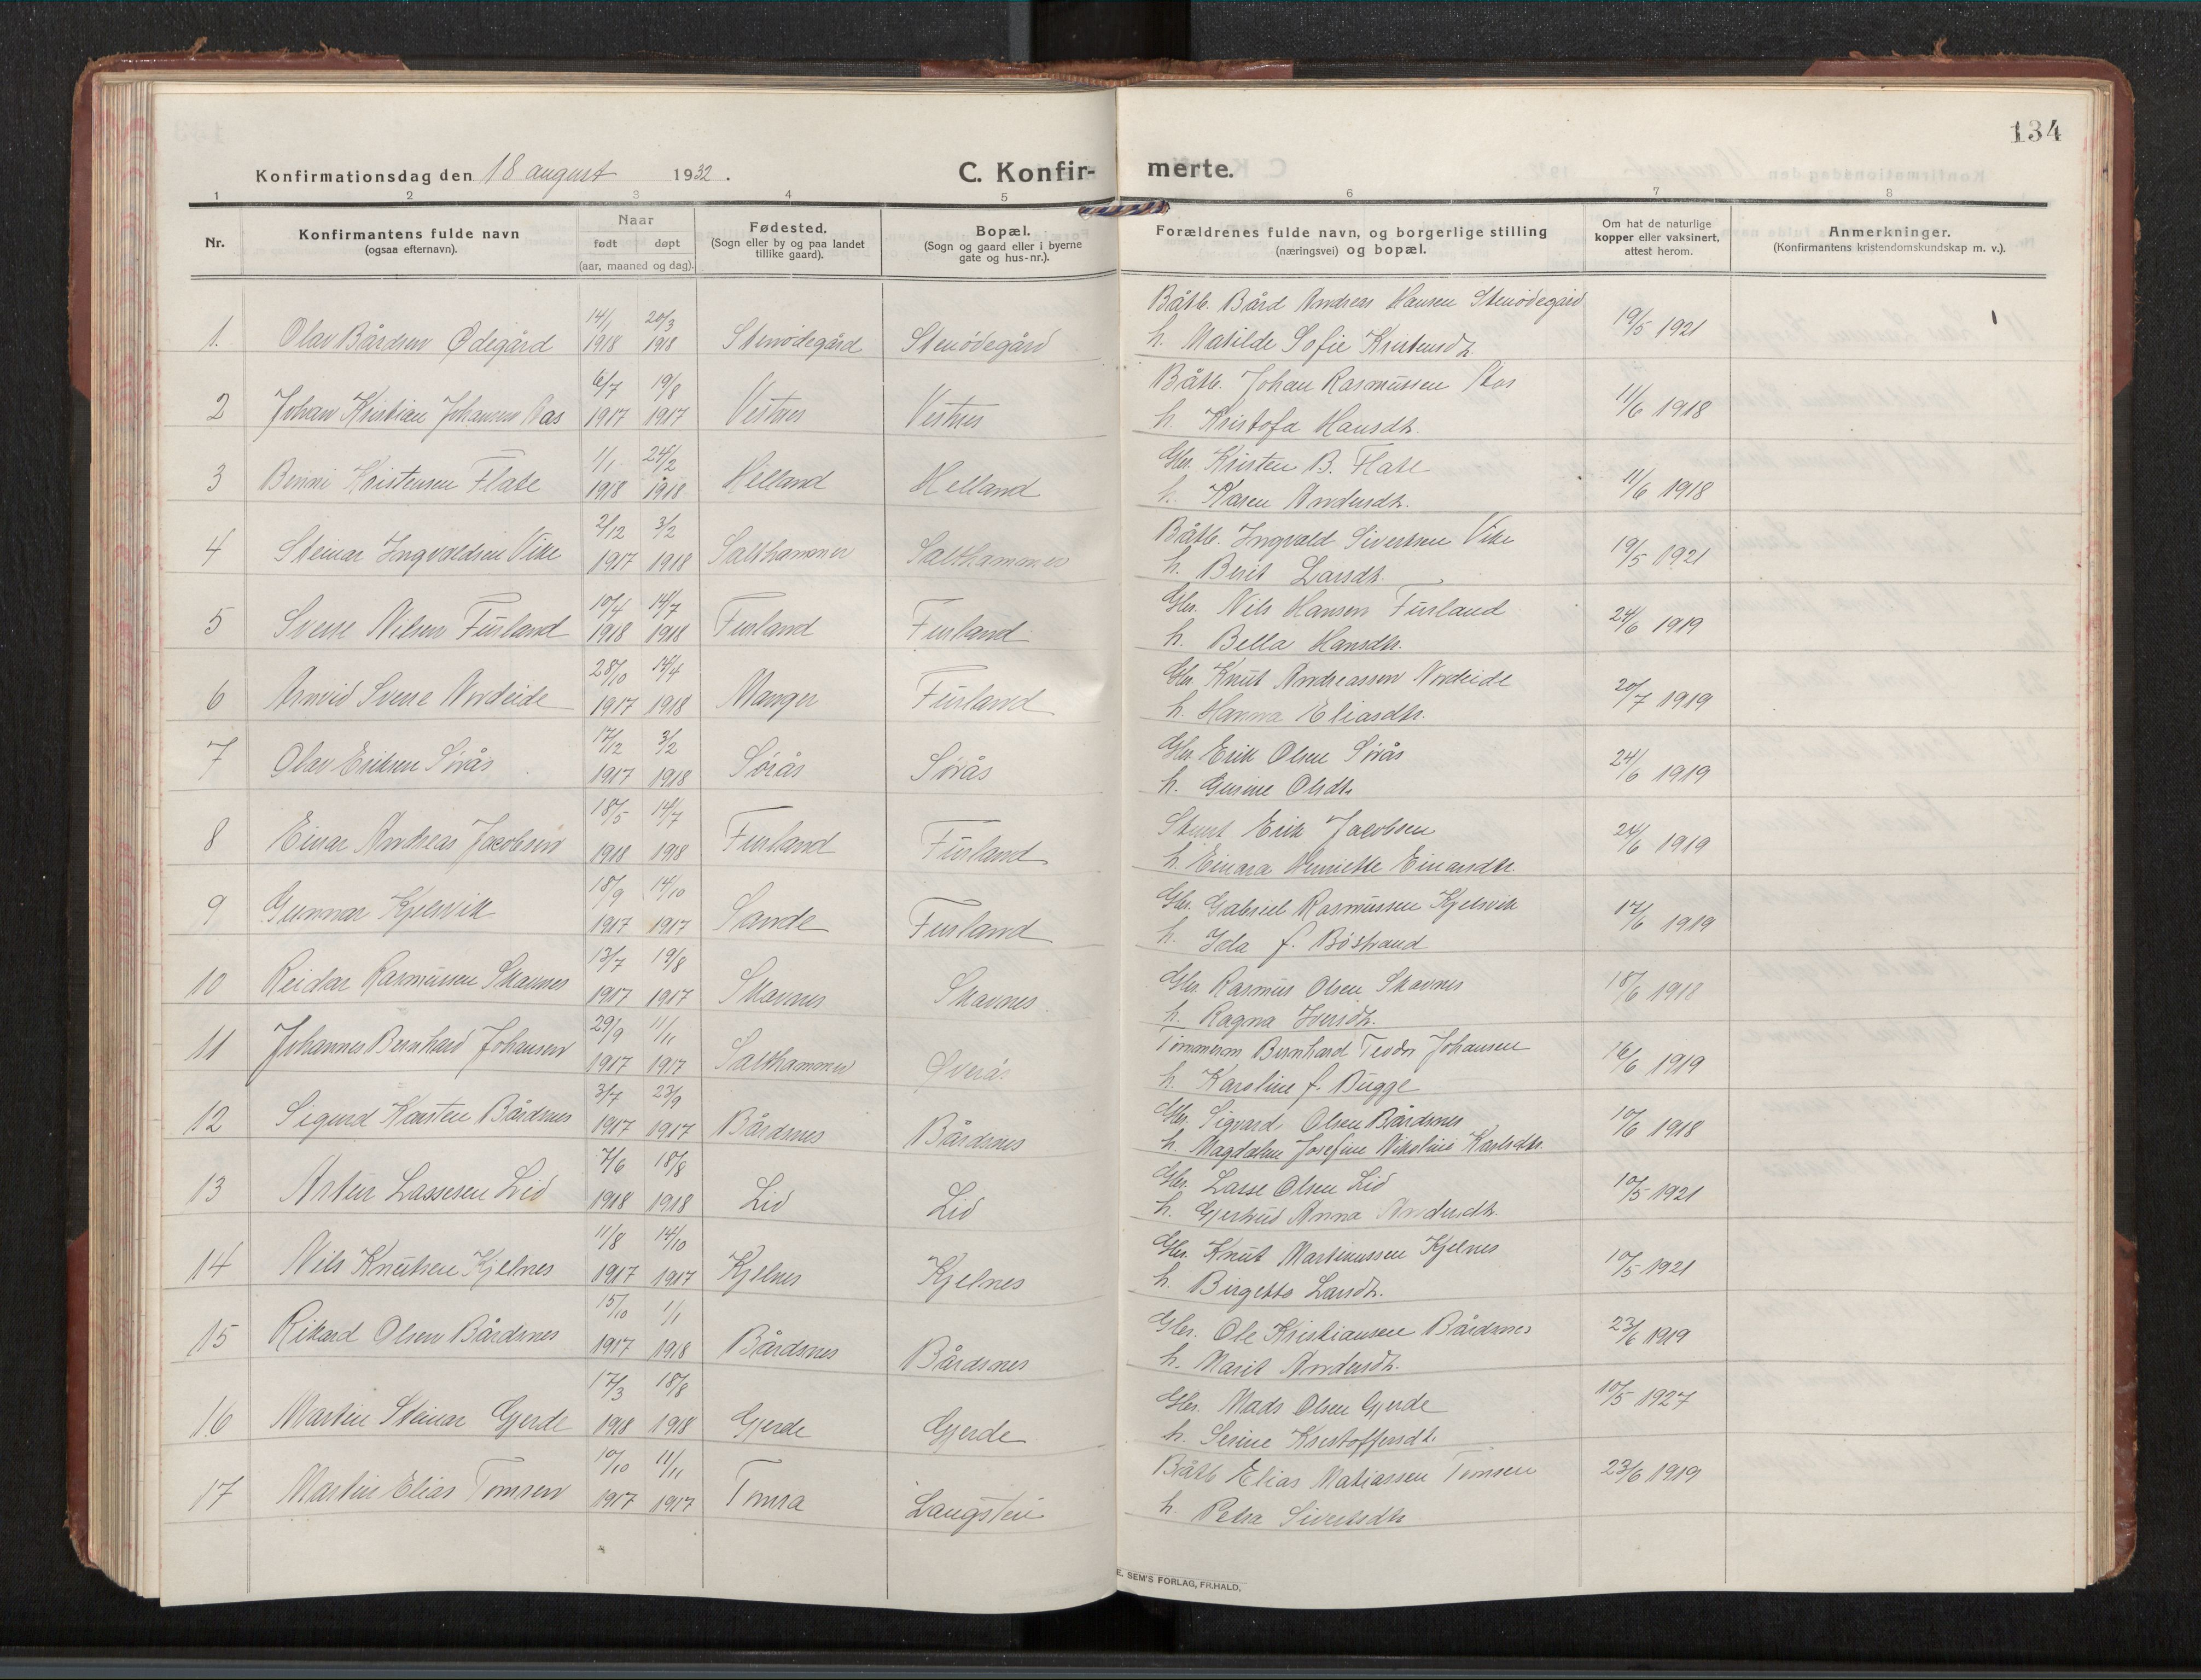 134
Konfirmationsdag den 18 august 1932.
C. Konfir- merte.
1 2 3 4 5 6 7 8
Nr.
Konfirmantens fulde navn
(ogsaa efternavn).
Naar
født døpt
(aar, maaned og dag).
Fødested.
(Sogn eller by og paa landet
tillike gaard).
Bopæl.
(Sogn og gaard eller i byerne
gate og hus-nr.).
Forældrenes fulde navn, og borgerlige stilling
(næringsvei) og bopæl.
Om hat de naturlige
kopper eller vaksinert,
attest herom.
Anmerkninger.
(Konfirmantens kristendomskundskap m. v.).
14/1 20/3 Båtb. Bård Andreas Hansen Stenødegård
1. Olav Bårdsen Ødegård 1918 1918 Stenødegård Stenødegård h. Matilde Sofie Kristensdt. 19/5 1921
6/7 19/8 Båtb. Johan Rasmussen Aas
2 Johan Kristian Johansen Aas 1917 1917 Vestnes Vestnes h. Kristofa Hansdt. 11/6 1918
1/1 24/2 Gbr. Kristen B. Flate
3 Benni Kristensen Flate 1918 1918 Helland Helland h. Karen Andersdt. 11/6 1918
2/12 3/2 Båtb. Ingvald Sivertsen Vike
4 Steinar Ingvaldsen Vike 1917 1918 Salthammer Salthammer h. Berit Larsdt. 19/5 1921
10/4 14/7 Gbr. Nils Hansen Furland
5 Sverre Nilsen Furland 1918 1918 Furland Furland h. Bella Hansdt. 24/6 1919
28/10 14/4 Gbr. Knut Andreassen Nordeide
6 Arnvid Sverre Nordeide 1917 1918 Manger Furland h. Hanna Eliasdtr. 20/7 1919
17/12 3/2 Gbr. Erik Olsen Sørås
7 Olav Eriksen Sørås 1917 1918 Sørås Sørås h. Gurine Olsdt. 24/6 1919
18/5 14/7 Erik Jacobsen
8 Einar Andreas Jacobsen 1918 1918 Furland Furland h. Einara Henriette Einarsdtr. 24/6 1919
18/9 14/10 Gbr. Gabriel Rasmussen Kjelsvik
9 Gunnar Kjelsvik 1917 1917 Sande Furland h. Ida f. Bøstrand 17/6 1919
13/7 19/8 Gbr. Rasmus Olsen Skavnes
10 Reidar Rasmussen Skavnes 1917 1917 Skavnes Skavnes h. Ragna Iversdt. 18/6 1918
29/9 11/11 Tømmerm Bernhard Teodor Johansen
11 Johannes Bernhard Johansen 1917 1917 Salthammer Øverå. h. Karoline f. Bugge 16/6 1919
3/7 23/9 Gbr. Sigvard Olsen Bårdsnes
12 Sigurd Karsten Bårdsnes 1917 1917 Bårdsnes Bårdsnes h. Magdalene Josefine Nikoline Karlsdtr. 10/6 1918
7/6 18/8 Gbr. Lasse Olsen Lid
13 Artur Lassesen Lid 1918 1918 Lid Lid h. Gjertrud Anna Andersdt. 10/5 1921
11/8 14/10 Gbr. Knut Martinussen Kjelnes
14 Nils Knutsen Kjelnes 1917 1917 Kjelnes Kjelnes h. Birgette Larsdt. 10/5 1921
15/10 1/1 Gbr. Ole Kristiansen Bårdsnes
15 Rikard Olsen Bårdsnes 1917 1918 Bårdsnes Bårdsnes h. Marit Andersdt. 23/6 1919
17/3 18/8 Gbr. Mads Olsen Gjerde
16 Martin Steinar Gjerde 1918 1918 Gjerde Gjerde h. Serine Kristoffersdt. 10/5 1927
10/10 11/11 Båtb Elias Matiassen Tomsen
17 Martin Elias Tomsen 1917 1917 Tomra Langstein h. Petra Sivertsdtr 23/6 1919
E. SEM'S FORLAG, FR.HALD.